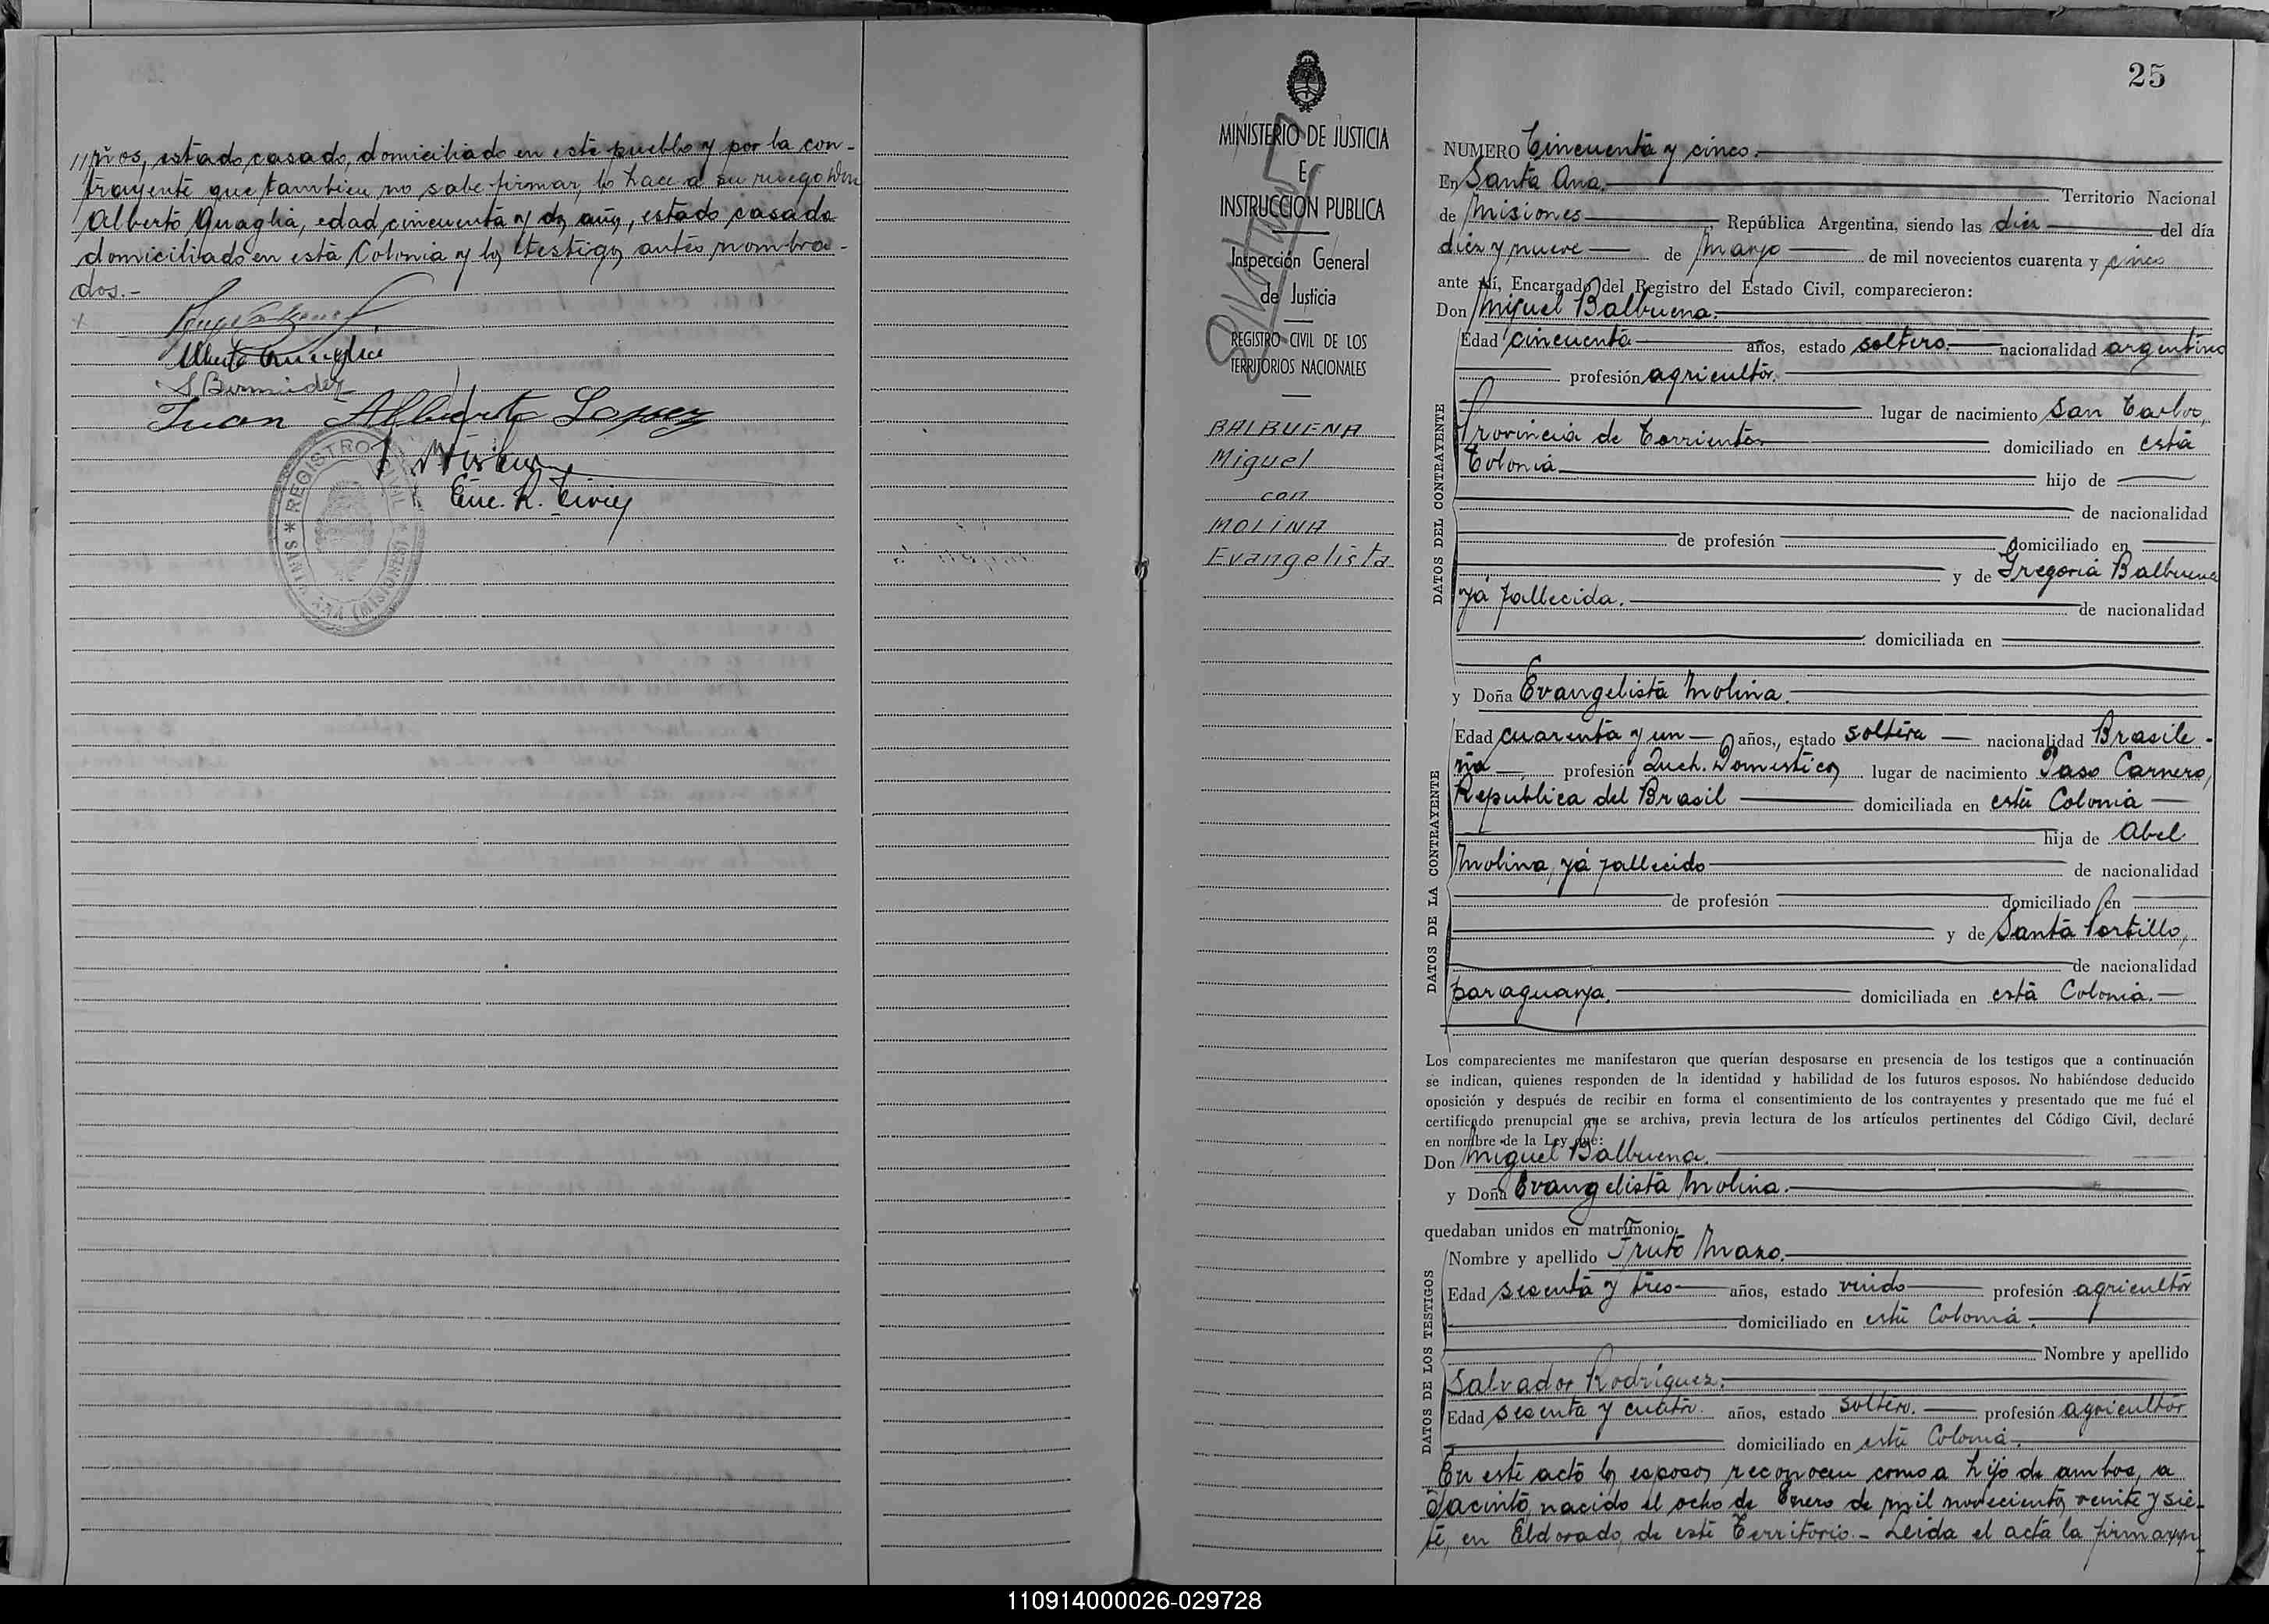 //ños, estado casado, domiciliado en este pueblo y por la con-
trayente que tambien no sabe firmar, lo hace a su ruego Don
Alberto Quaglia, edad cincuenta y dos años, estado casado
domiciliado en esta Colonia y los testigos antes nombra-
dos.-
Alberto Quaglia
S Bermudez
Juan Alberto Lopez
Enc. R. Civil
REGISTRO CIVIL * SANTA ANA (MISIONES) *
MINISTERIO DE JUSTICIA
E
INSTRUCCION PUBLICA
Inspección General
de Justicia
REGISTRO CIVIL DE LOS
TERRITORIOS NACIONALES
BALBUENA
Miguel
con
MOLINA
Evangelista
25
NUMERO Cincuenta y cinco.
En Santa Ana. Territorio Nacional
de Misiones, República Argentina, siendo las diez del día
diez y nueve de Mayo de mil novecientos cuarenta y cinco
ante mí, Encargado del Registro del Estado Civil, comparecieron:
Don Miguel Balbuena.
DATOS DEL CONTRAYENTE
Edad cincuenta años, estado soltero nacionalidad argentino
profesión agricultor.
lugar de nacimiento San Carlos,
Provincia de Corrientes domiciliado en esta
Colonia hijo de
de nacionalidad
de profesión domiciliado en
y de Gregoria Balbuena
ya fallecida. de nacionalidad
domiciliada en
y Doña Evangelista Molina.
DATOS DE LA CONTRAYENTE
Edad cuarenta y un años, estado soltera nacionalidad Brasile-
ña profesión Queh. Domesticos lugar de nacimiento Paso Carnero,
Republica del Brasil domiciliada en esta Colonia
hija de Abel
Molina, ya fallecido de nacionalidad
de profesión domiciliado en
y de Santa Portillo,
de nacionalidad
paraguaya. domiciliada en esta Colonia.-
Los comparecientes me manifestaron que querían desposarse en presencia de los testigos que a continuación
se indican, quienes responden de la identidad y habilidad de los futuros esposos. No habiéndose deducido
oposición y después de recibir en forma el consentimiento de los contrayentes y presentado que me fué el
certificado prenupcial que se archiva, previa lectura de los artículos pertinentes del Código Civil, declaré
en nombre de la Ley que:
Don Miguel Balbuena.
y Doña Evangelista Molina.
quedaban unidos en matrimonio.
DATOS DE LOS TESTIGOS
Nombre y apellido Fruto Mazo.
Edad sesenta y tres años, estado viudo profesión agricultor
domiciliado en esta Colonia.
Nombre y apellido
Salvador Rodríguez.
Edad sesenta y cuatro. años, estado soltero. profesión agricultor
domiciliado en esta Colonia.
En este acto los esposos reconocen como a hijo de ambos, a
Jacinto, nacido el ocho de Enero de mil novecientos veinte y sie-
te, en Eldorado, de este Territorio.- Leida el acta la firmaron
110914000026-029728